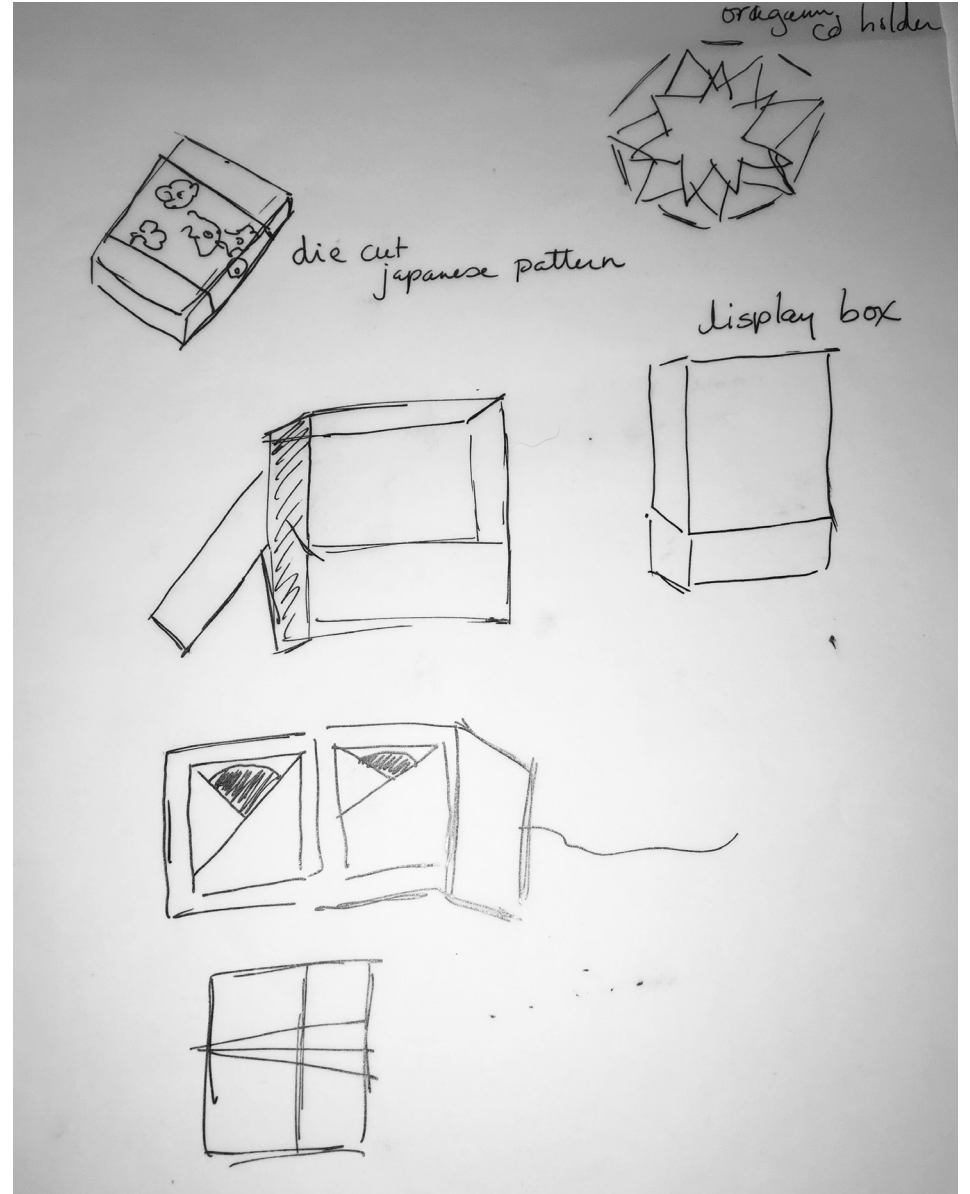 oragami
cd holder
die cut
japanese pattern
display box